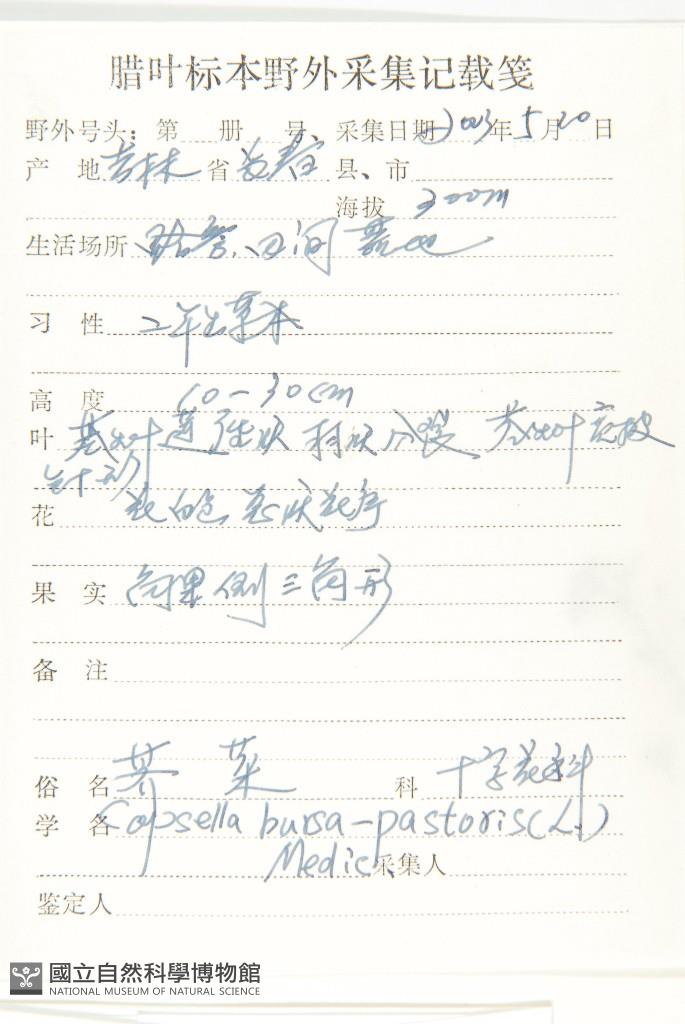 腊叶标本野外采集记载笺
野外号头：第 册 号、采集日期 2003年5月20日
产 地 吉林 省 长春 县、市
海拔 300m
生活场所 路旁、田间 荒地
习 性 二年生草本
高 度 10-30cm
叶 基生叶莲座状 羽状分裂 茎生叶 披
针形
花 花白色 总状花序
果 实 角果倒三角形
备 注
俗 名 荠 菜 科 十字花科
学 名 Capsella bursa-pastoris (L.)
Medic. 采集人
鉴定人
國立自然科學博物館
NATIONAL MUSEUM OF NATURAL SCIENCE